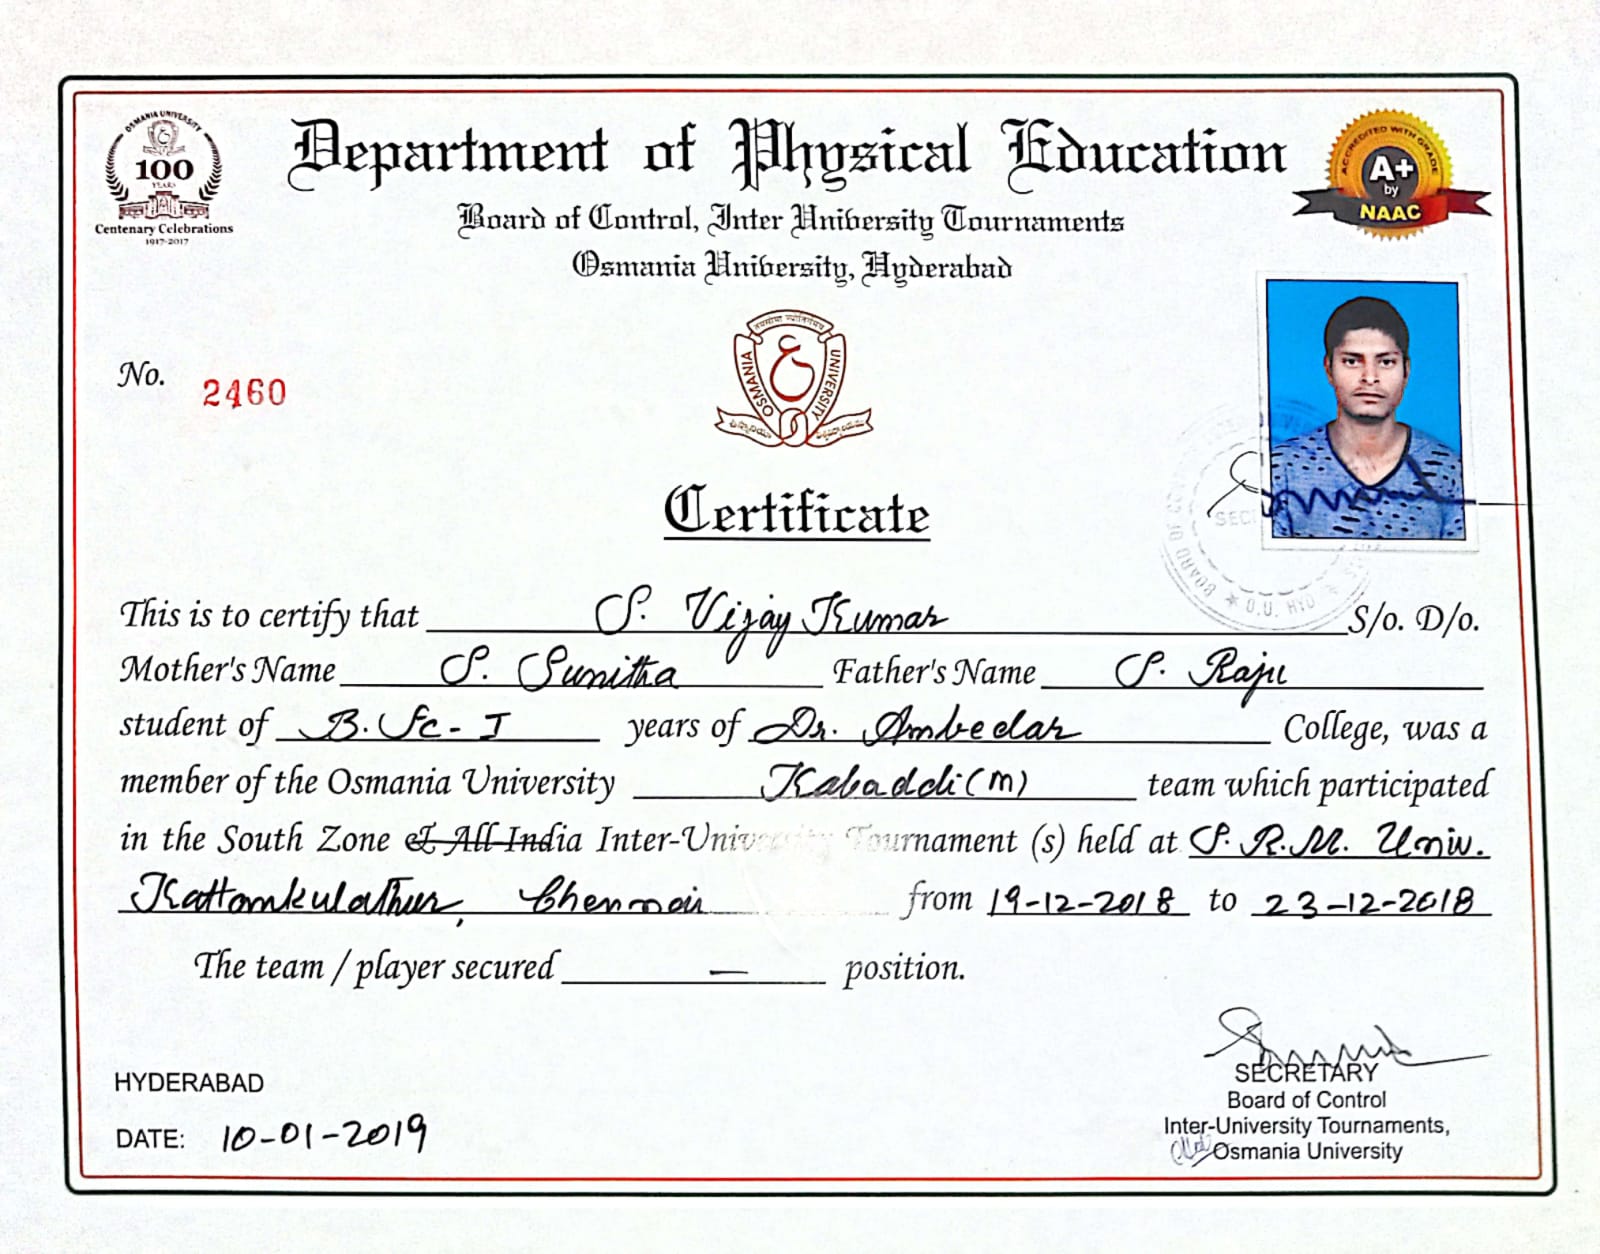 OSMANIA UNIVERSITY
100
YEARS
Centenary Celebrations
1917-2017
Department of Physical Education
Board of Control, Inter University Tournaments
Osmania University, Hyderabad
ACCREDITED WITH GRADE
A+
by
NAAC
No. 2460
OSMANIA UNIVERSITY
Certificate
BOARD OF
SEC
O.U. HYD
This is to certify that S. Vijay Kumar S/o. D/o.
Mother's Name S. Sunitha Father's Name S. Raju
student of B.Sc-I years of Dr. Ambedar College, was a
member of the Osmania University Kabaddi (M) team which participated
in the South Zone & All India Inter-University Tournament (s) held at S.R.M. Univ.
Kattankulathur, Chennai from 19-12-2018 to 23-12-2018
The team / player secured — position.
HYDERABAD
DATE: 10-01-2019
SECRETARY
Board of Control
Inter-University Tournaments,
Osmania University